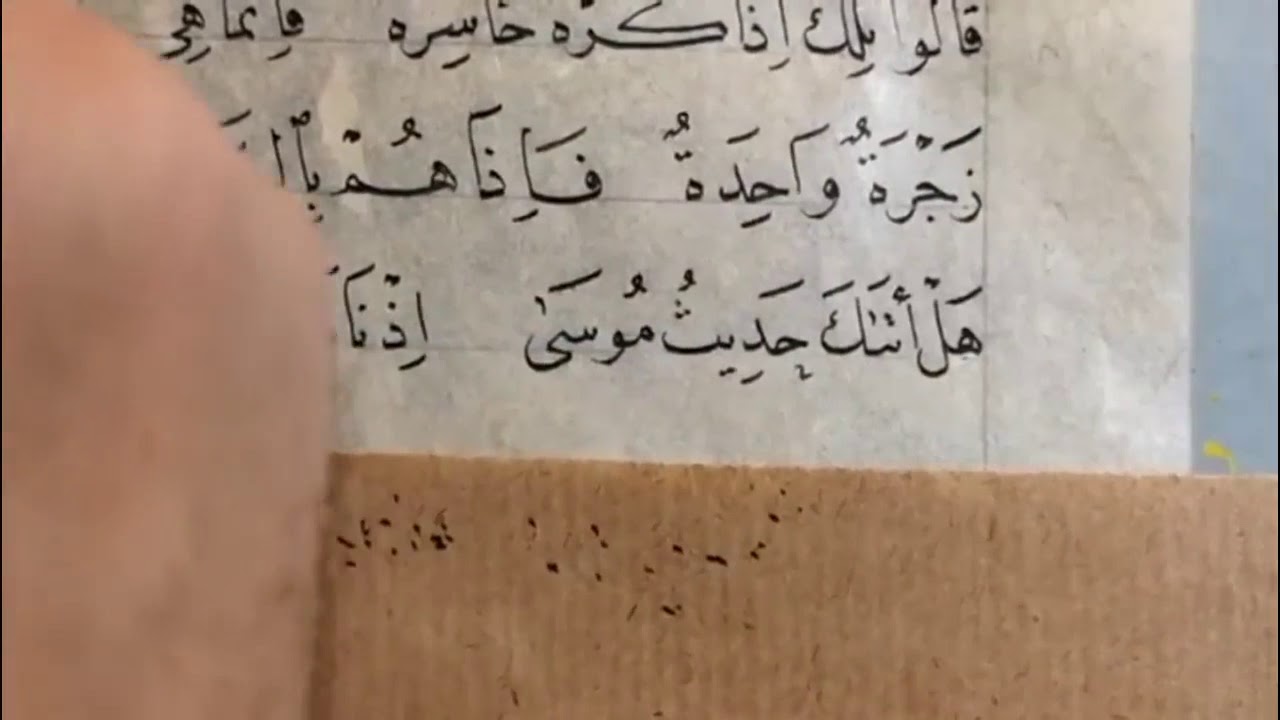 قالوا تلك اذا كره خاسره فانما هى
زَجْرَةٌ وَاحِدَةٌ فَاِذَا هُمْ
هَلْ أَتٰىكَ حَدِيثُ مُوسَىٰ اِذْ نَا